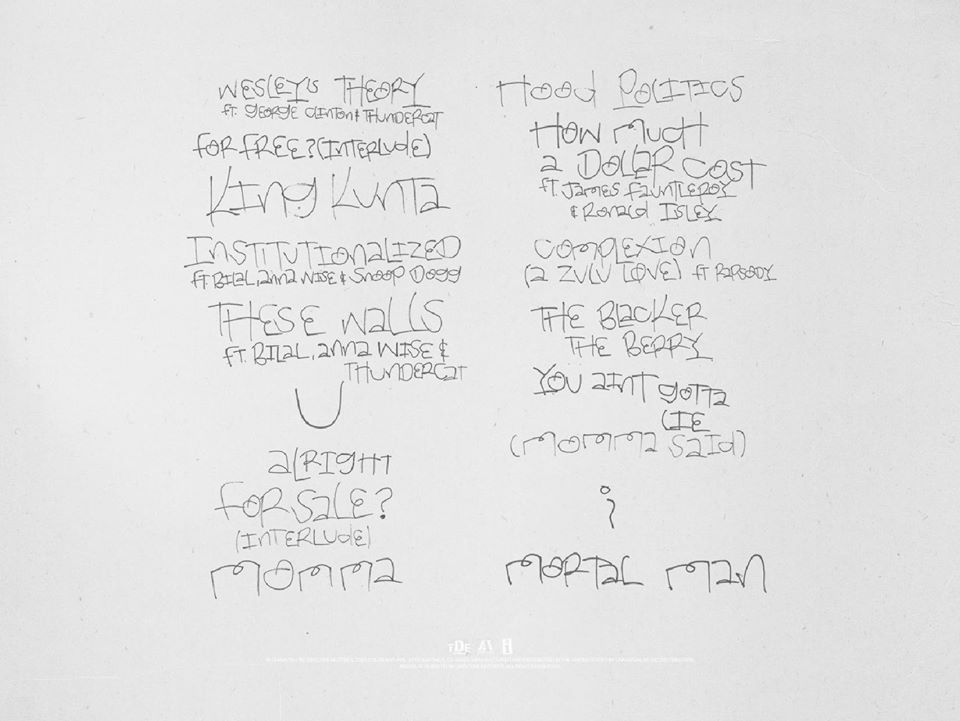 WESLEY'S THEORY
ft. GEORGE CLINTON & THUNDERCAT
FOR FREE? (INTERLUDE)
KING KUNTA
INSTITUTIONALIZED
ft. BILAL, anna WISE & SNOOP DOGG
THESE WALLS
ft. BILAL, anna WISE &
THUNDERCAT
U
aLRIGHT
FOR SALE?
(INTERLUDE)
MOMMA
HOOD POLITICS
HOW MUCH
a DOLLAR COST
ft. JAMES FAUNTLEROY
& RONALD ISLEY
COMPLEXION
(a ZULU LOVE) ft RAPSODY
THE BLACKER
THE BERRY
YOU AINT GOTTA
LIE
(MOMMA SAID)
i
MORTAL MAN
TDE